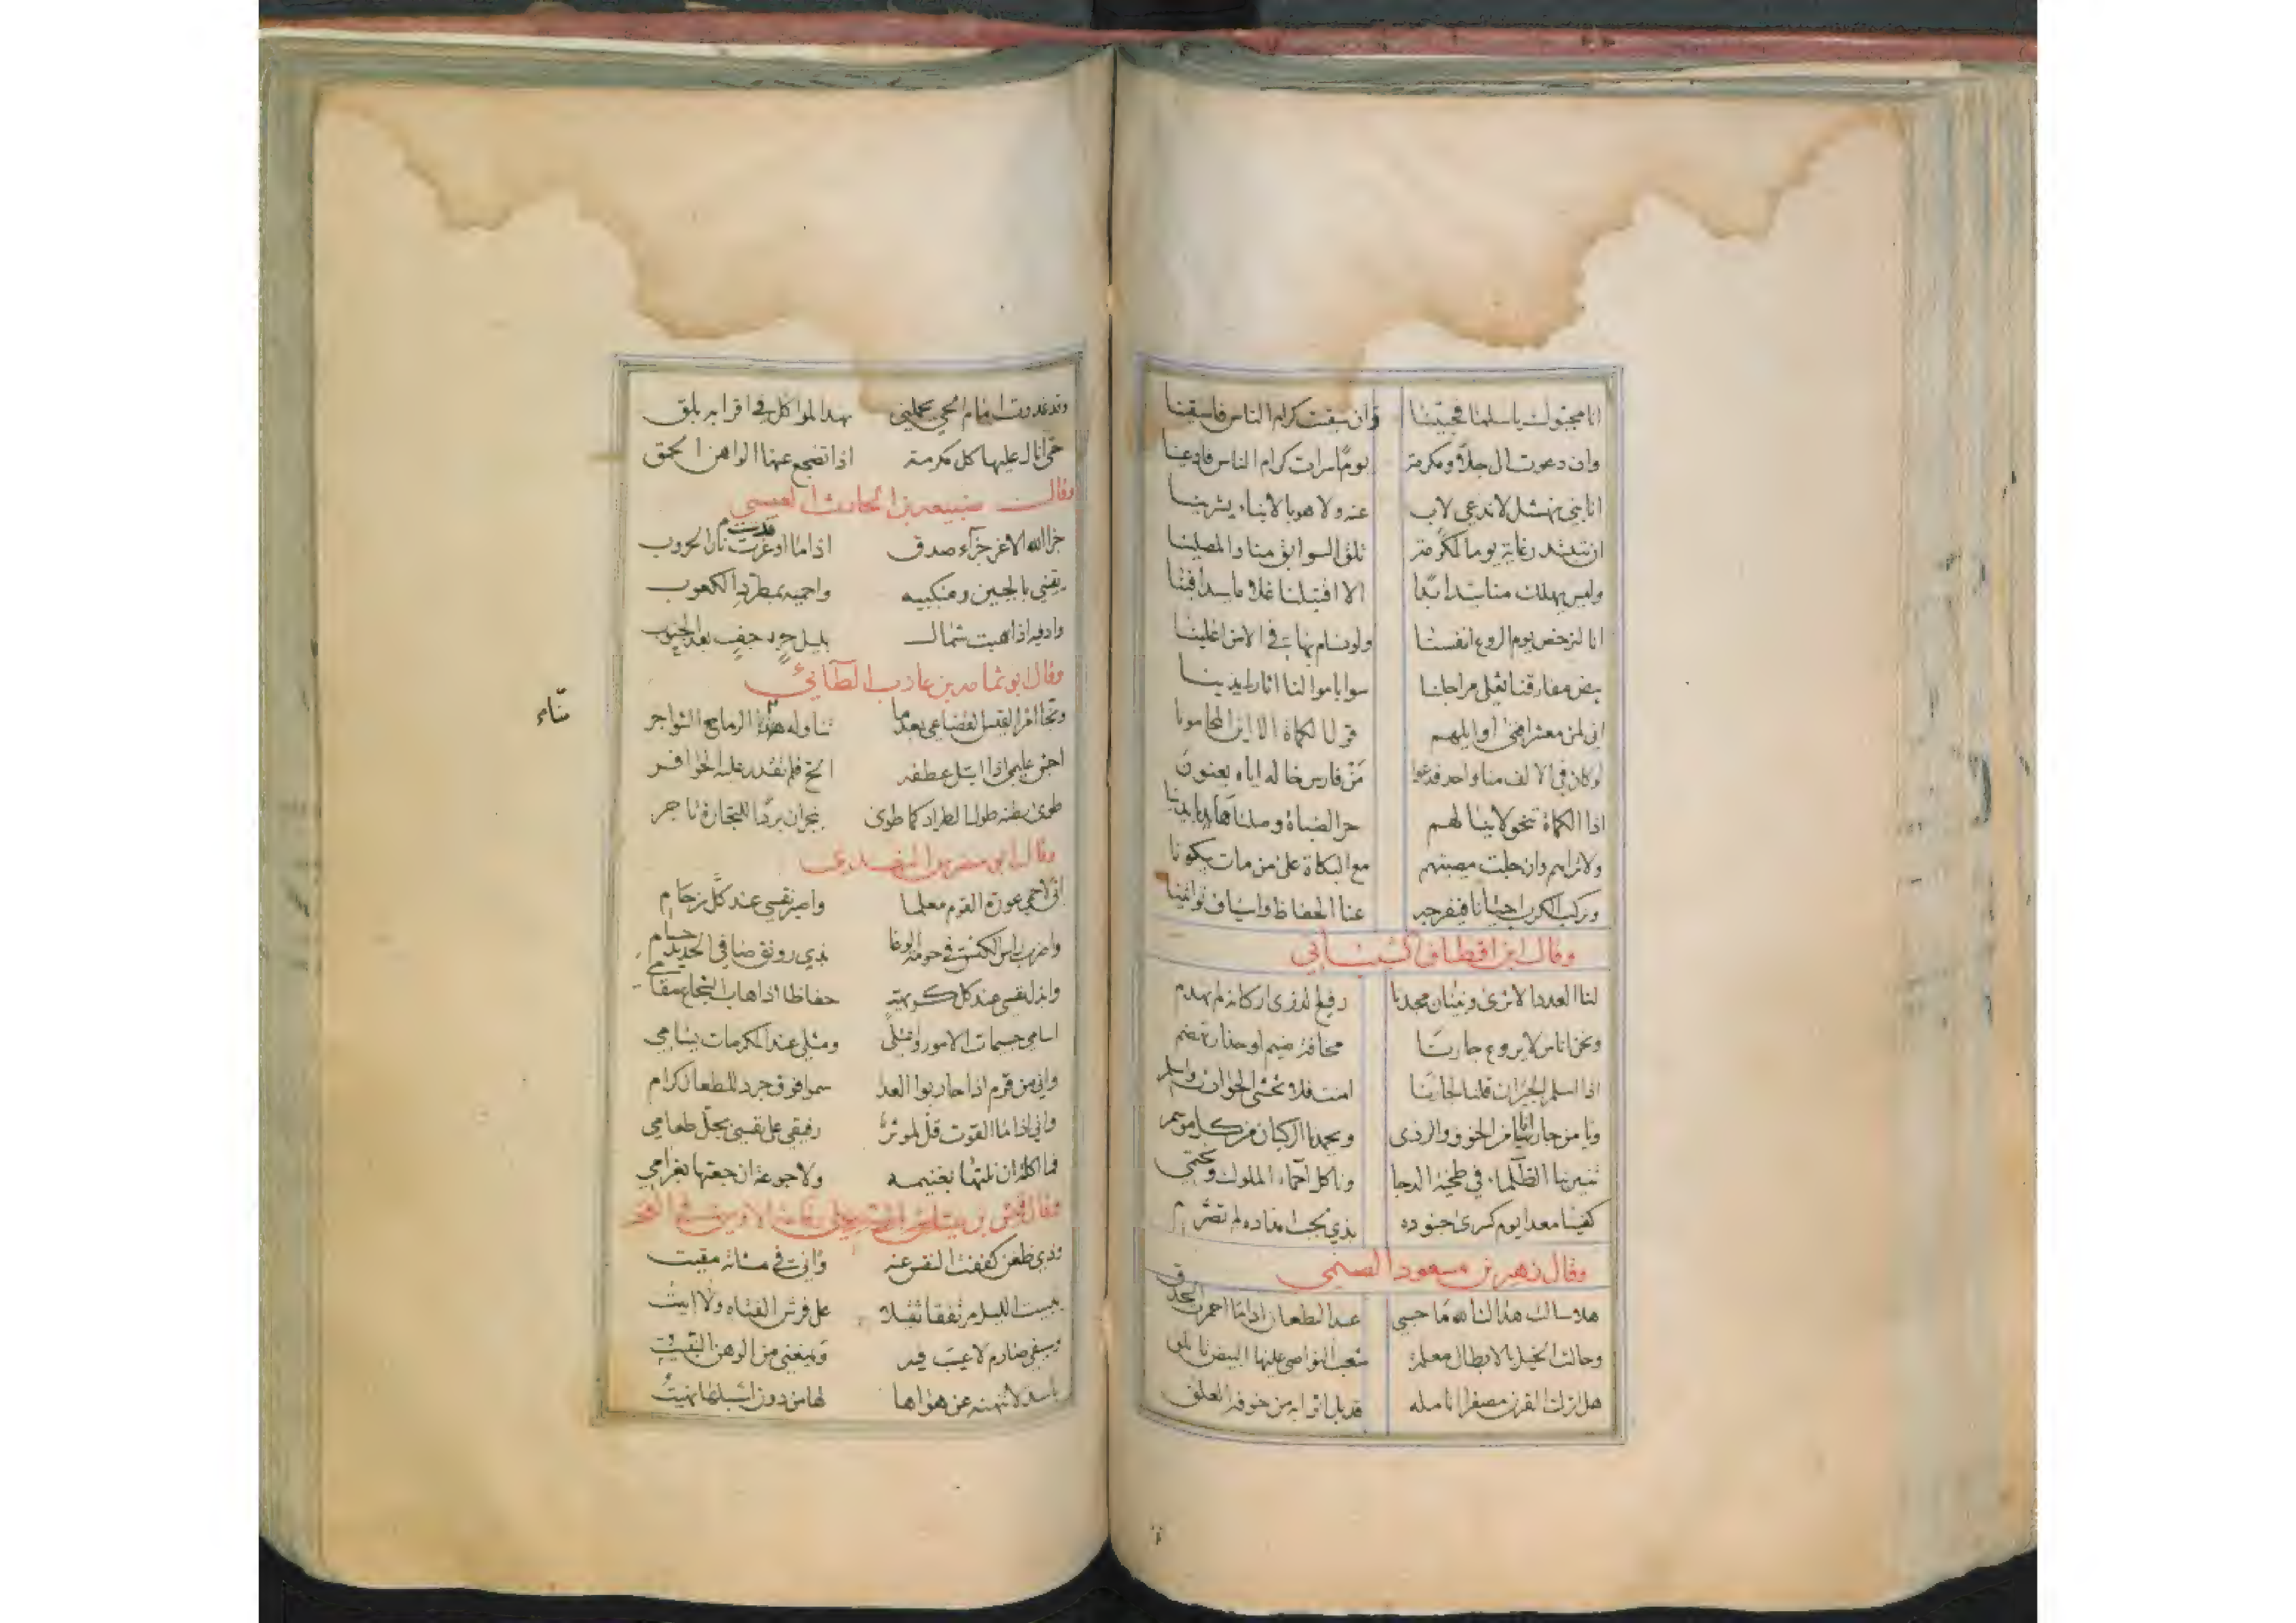 انا محيوك يا سلمى فحيينا وان سقيت كرام الناس فاسقينا
وان دعوت الى جلا ومكرمة يوما سراة كرام الناس فادعينا
انا بني نهشل لا ندعي لاب عنه ولا هو بالابناء يشرينا
ان تبتدر غاية يوما لمكرمة تلق السوابق منا والمصلينا
وليس يهلك منا سيد ابدا الا افتلينا غلاما سيدا فينا
انا لنرخص يوم الروع انفسنا ولو نسام بها في الامن اغلينا
بيض مفارقنا تغلي مراجلنا سوا باموالنا اثار ايدينا
اني لمن معشر افنى اوايلهم قول الكماة الا اين المحامونا
لو كان في الالف منا واحد فدعوا من فارس خاله اياه يعنون
اذا الكماة تنحوا لهم حر الظباة وصلناها بايدينا
ولا تراهم وان جلت مصيبتهم مع البكاة على من مات يبكونا
ونركب الكره احيانا فيفرجه عنا الحفاظ واسياف تواتينا
وقال ابن
لنا العدد الاثرى وبنيان مجدنا رفيع الذرى اركانه لم تهدم
ونحن اناس لا يروع جارنا مخافة ضيم او حذار تهضم
اذا اسلم الجيران قلنا لجارنا امنت فلا تخشى الحوادث واسلم
الخوف والردى ويحمدنا الركبان من كل موسم
تنير بنا الظلماء في طخية الدجا وناكل احماء الملوك ونحتمي
كفينا معدا يوم كسرى جنوده بذي لجب
وقال زهير بن مسعود الضبي
هلا سالت هداك الله ما حسبي عند الطعان اذا ما احمرت الحدق
وجالت الخيل بالابطال معلمة شعث النواصي عليها البيض تاتلق
هل اترك القرن مصفرا انامله قد بل اثوابه من جوفه العلق
وقد غدوت امام الحي يحملني نهد المراكل في اقرابه بلق
حتى انال عليها كل مكرمة اذا تضجع عنها الواهن الحمق
وقال ربيعة بن الحارث العبسي
جزا الله الاغر جزاء صدق اذا ما اوقدت نار الحروب
يقيني بالجبين ومنكبيه واحميه بمطرد الكعوب
وادفيه اذا هبت شمال بليل حرجف بعد الجنوب
وقال ابو ثمامة بن عازب الطائي
ونجا امرا القيس القضاعي بعدما تناوله الرماح الشواجر
اجش عليه ابتل عطفه الح فلم تقدر عليه الحوافر
طوى بطنه طول الطراد كما طوى بنجران بردا للتجارة تاجر
وقال
اني لاحمي عورة القوم معلما واصبر نفسي عند كل زحام
واضرب راس الكبش في حومة الوغا بذي رونق صافي الحديد حسام
وابذل نفسي عند كل كريهة حفاظا اذا هاب الشجاع مقامي
اسامي جسيمات الامور ومثلي عند المكرمات يسامي
واني من قوم اذا حاربوا العدا سموا فوق جرد للطعان كرام
واني اذا ما القوت قل لموثر رفيقي على نفسي بجل طعامي
فما اكلة ان نلتها بغنيمة ولا جوعة ان جعتها بغرامي
وقال
وذي ظغن كففت النفس عنه واني في مساته مقيت
يبيت الليل مرتفقا ثقيلا على فرش الفتاة ولا ابيت
وسيفي صارم لا عيب فيه ويمنعني من الرهق النبيت
مناء